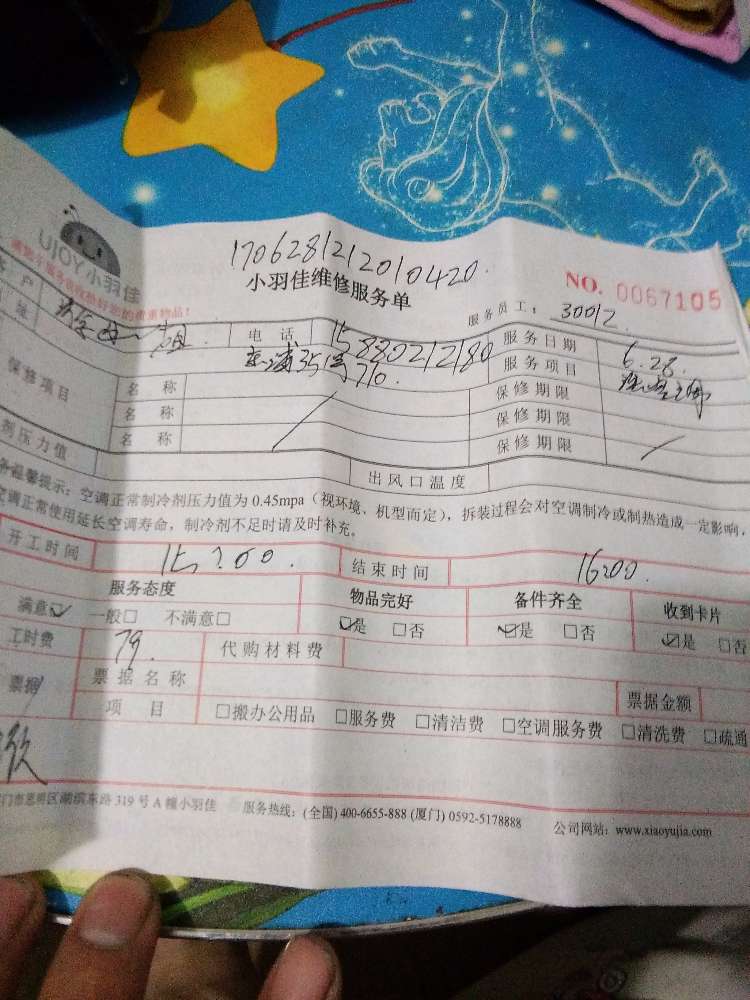 UJOY小羽佳
1706281212010420.
小羽佳维修服务单
NO. 0067105
服务员工： 30012.
户 姐. 电话 15880212180 服务日期 6.28.
址 35号710. 服务项目
保修项目 名称 保修期限
名称 保修期限
名称 保修期限
剂压力值 出风口温度
温馨提示：空调正常制冷剂压力值为 0.45mpa（视环境、机型而定），拆装过程会对空调制冷或制热造成一定影响，
空调正常使用延长空调寿命，制冷剂不足时请及时补充。
开工时间 15:00. 结束时间 16:00.
服务态度 物品完好 备件齐全 收到卡片
满意☑ 一般□ 不满意□ ☑是 □否 ☑是 □否 ☑是 □否
工时费 79. 代购材料费
票据 票据名称 票据金额
项目 □搬办公用品 □服务费 □清洁费 □空调服务费 □清洗费 □疏通
门市思明区湖滨东路 319 号 A 幢小羽佳 服务热线：(全国) 400-6655-888 (厦门) 0592-5178888 公司网站：www.xiaoyujia.com